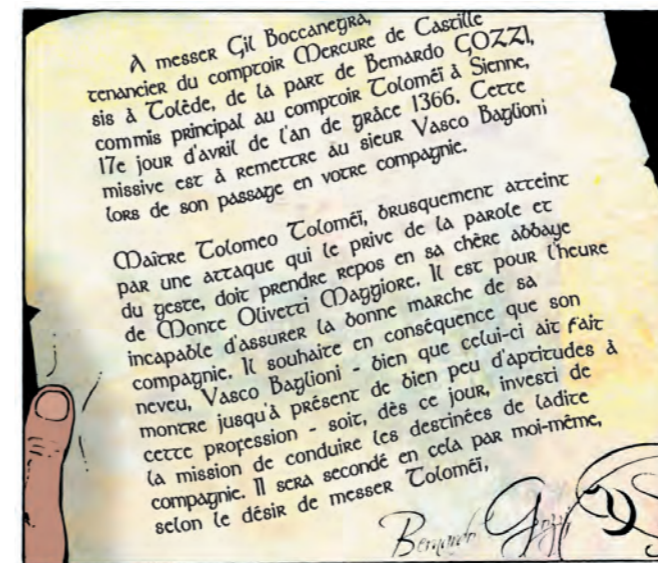 A messer Gil Boccanegra,
tenancier du comptoir Mercure de Castille
sis à Tolède, de la part de Bernardo GOZZI,
commis principal au comptoir Toloméï à Sienne,
17e jour d'avril de l'an de grâce 1366. Cette
missive est à remettre au sieur Vasco Baglioni
lors de son passage en votre compagnie.
Maître Tolomeo Toloméï, brusquement atteint
par une attaque qui le prive de la parole et
du geste, doit prendre repos en sa chère abbaye
de Monte Olivetti Maggiore. Il est pour l'heure
incapable d'assurer la bonne marche de sa
compagnie. Il souhaite en conséquence que son
neveu, Vasco Baglioni - bien que celui-ci ait fait
montre jusqu'à présent de bien peu d'aptitudes à
cette profession - soit, dès ce jour, investi de
la mission de conduire les destinées de ladite
compagnie. Il sera secondé en cela par moi-même,
selon le désir de messer Toloméï,
Bernardo Gozzi